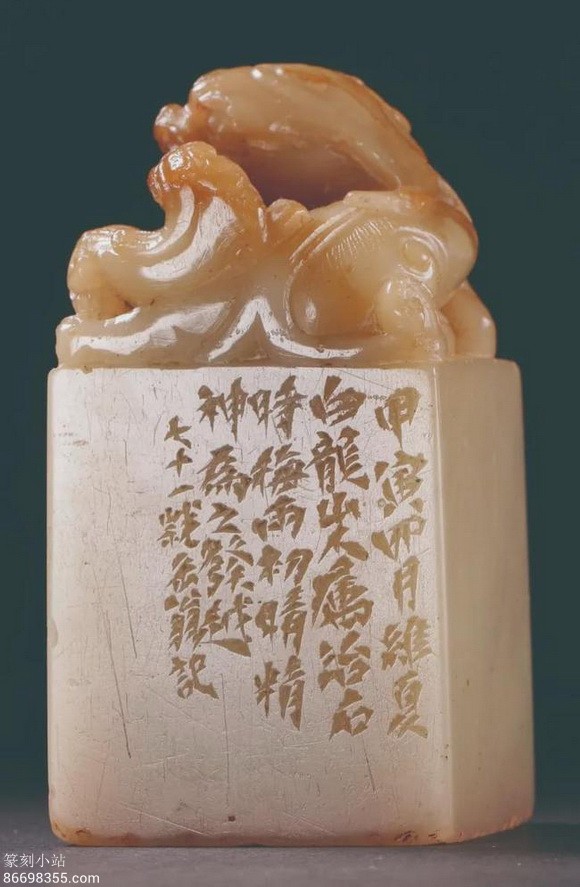 甲寅四月維夏
白龍山人屬治石
時梅雨初晴精
神為之發越
七十一歲缶翁記
篆刻小站
86698355.com